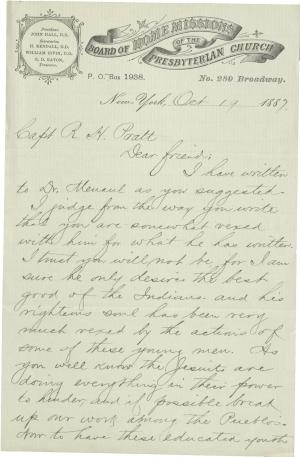 President:
JOHN HALL, D.D.
Secretaries:
H. KENDALL, D.D.
WILLIAM IRVIN, D.D.
O. D. EATON,
Treasurer.
BOARD OF HOME MISSIONS
OF THE
PRESBYTERIAN CHURCH
P. O. Box 1938.
No. 280 Broadway.
New-York, Oct 19 1887
Capt R. H. Pratt
Dear friend;
I have written
to Dr. Menaul as you suggested.
I judge from the way you write
that you are somewhat vexed
with him for what he has written.
I trust you will not be, for I am
sure he only desires the best
good of the Indians and his
righteous soul has been very
much vexed by the actions of
some of these young men. As
you well know the Jesuits are
doing everything in their power
to hinder, and if possible break
up our work among the Pueblos.
Now to have these educated youth